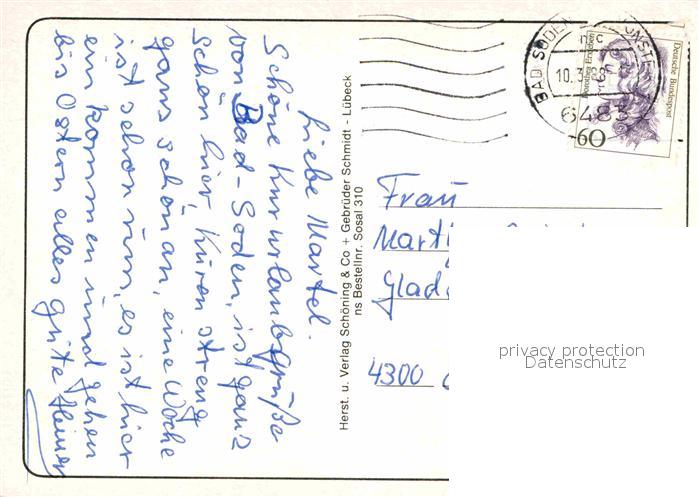 Liebe Martel.
Schöne Kururlaubsgrüße
von Bad-Soden, ist ganz
schön hier, Kuren strengt
ganz schön an, eine Woche
ist schon rum, es ist hier
ein kommen und gehen
bis Ostern alles gute Heiner
Herst. u. Verlag Schöning & Co + Gebrüder Schmidt - Lübeck
ns Bestellnr. Sosal 310
BAD SODEN
10.3.
648
60
Deutsche Bundespost
Dorothea Erxleben
Frau
4300
privacy protection
Datenschutz